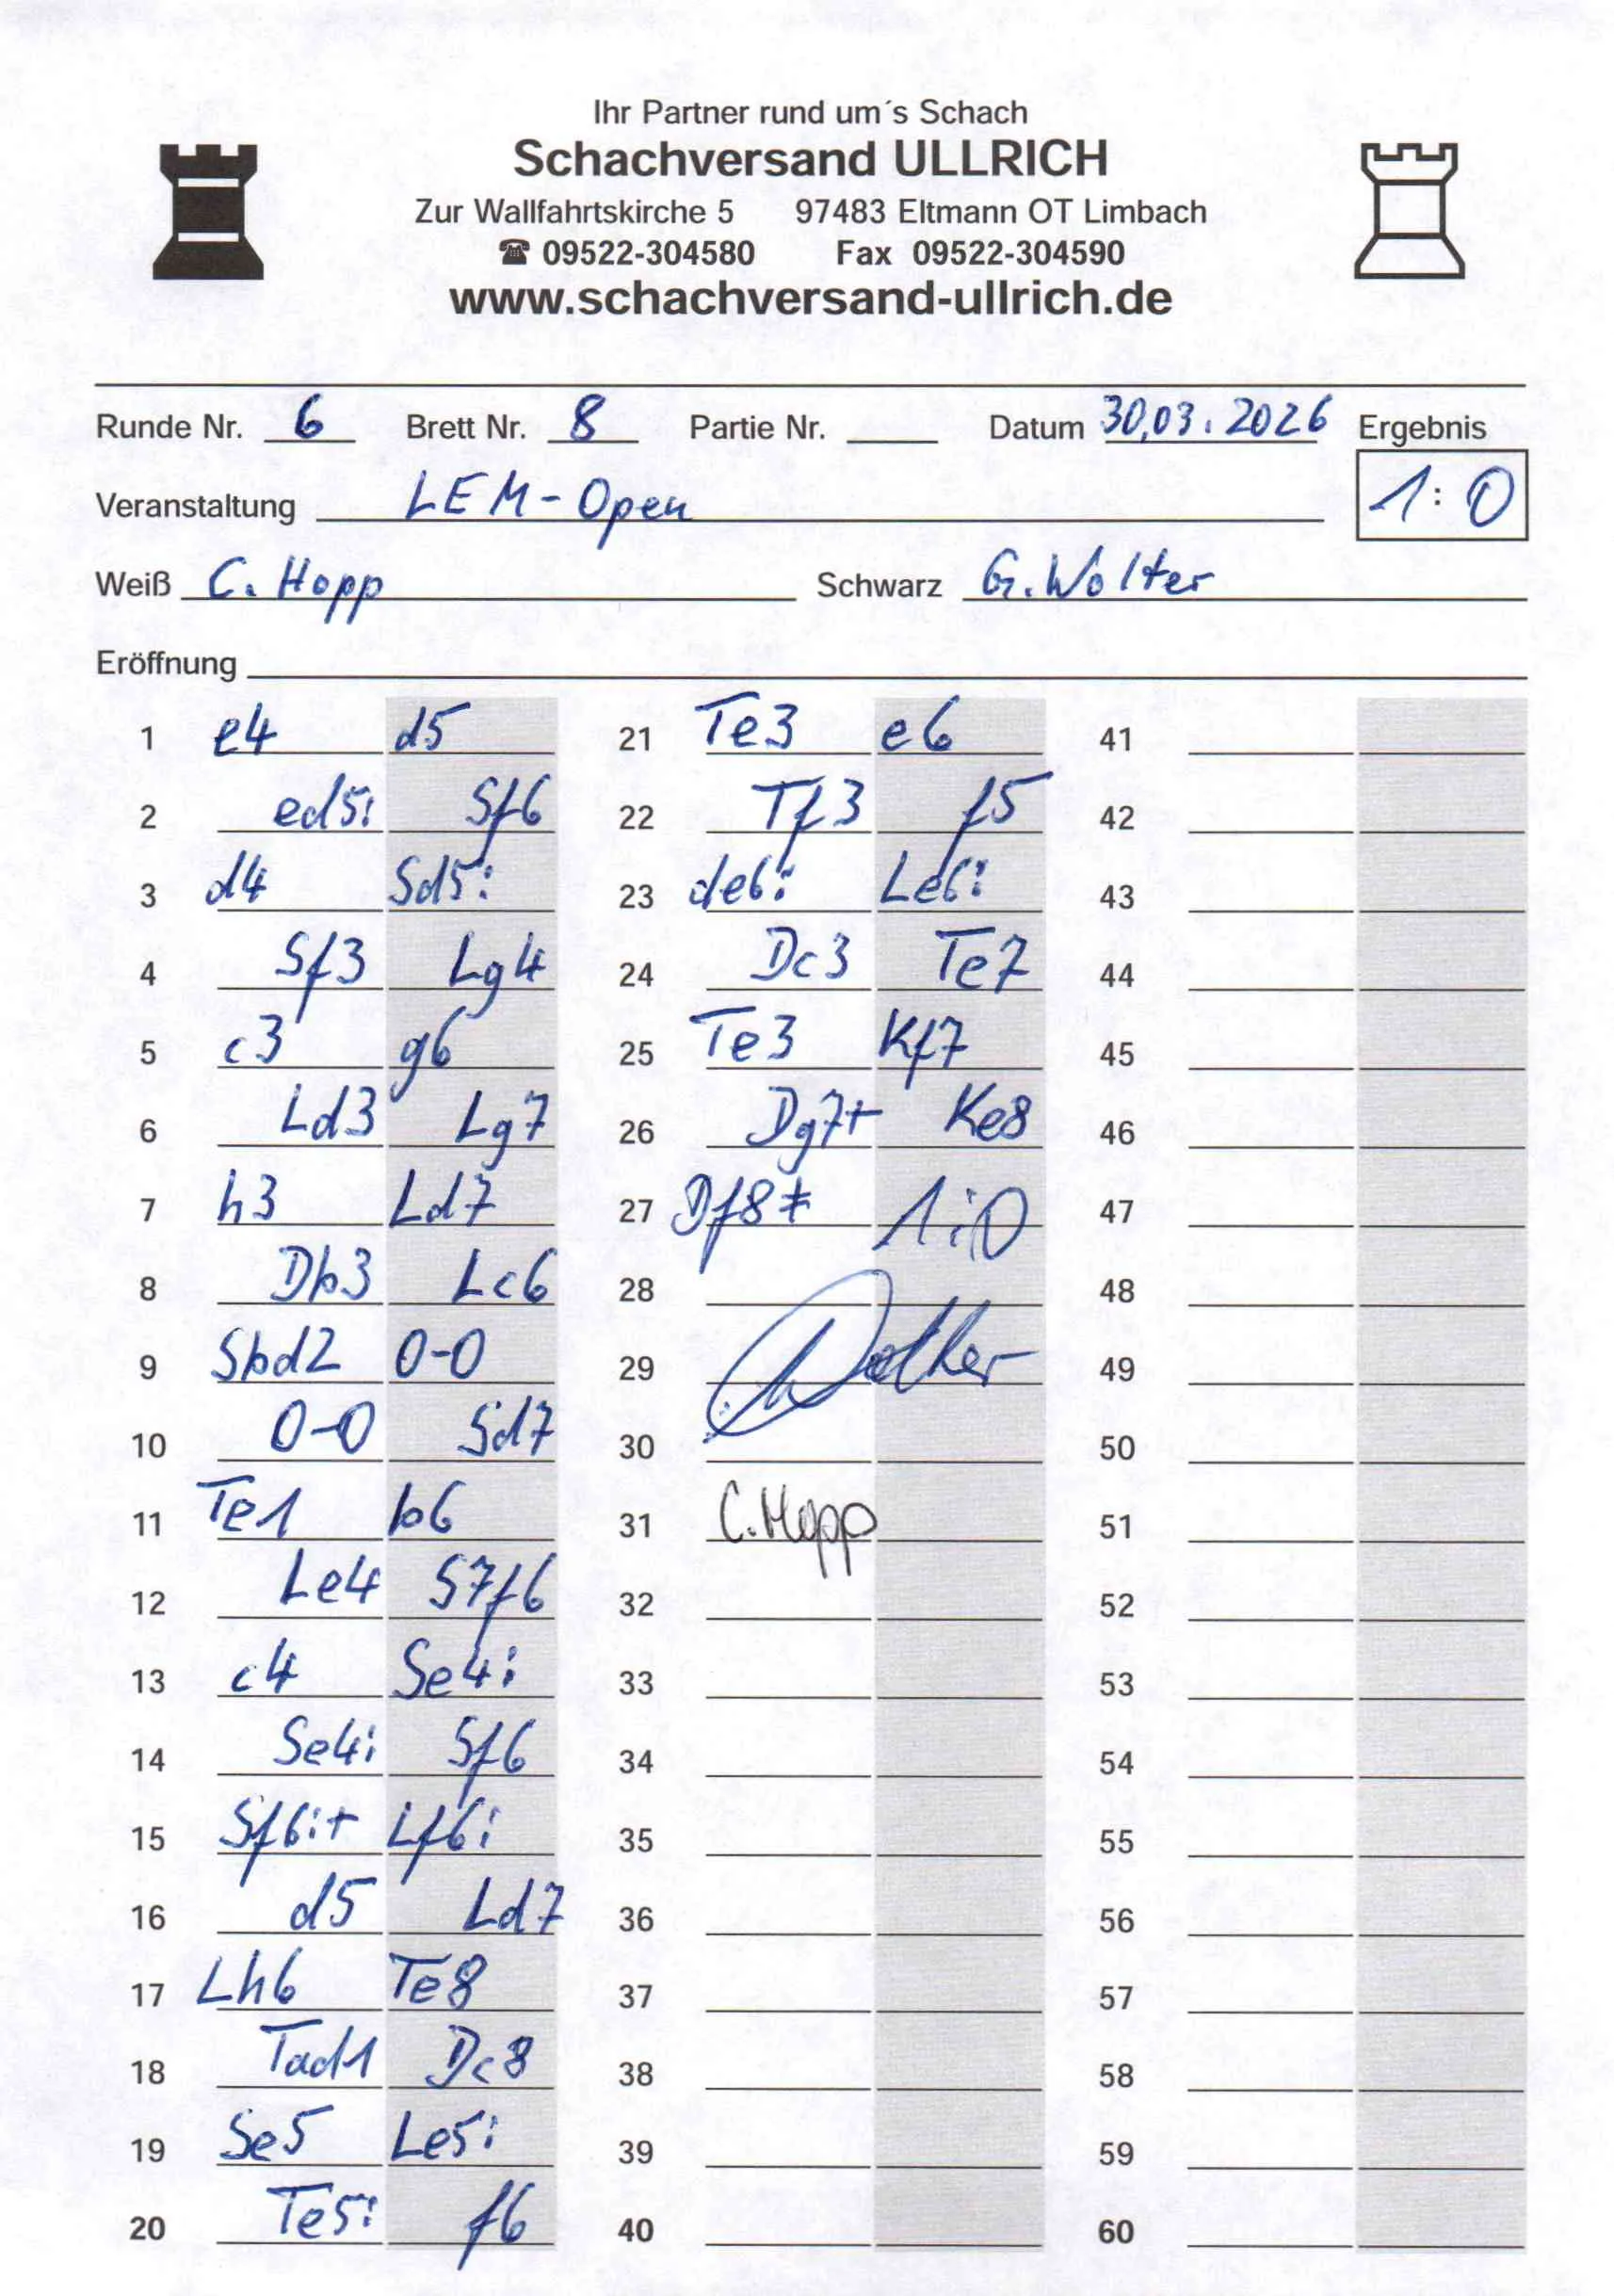 Ihr Partner rund um´s Schach
Schachversand ULLRICH
Zur Wallfahrtskirche 5 97483 Eltmann OT Limbach
☎ 09522-304580 Fax 09522-304590
www.schachversand-ullrich.de
Runde Nr. 6 Brett Nr. 8 Partie Nr. Datum 30.03.2026 Ergebnis
Veranstaltung LEM-Open 1:0
Weiß C. Hopp Schwarz G. Wolter
Eröffnung
1 e4 d5 21 Te3 e6 41
2 ed5: Sf6 22 Tf3 f5 42
3 d4 Sd5: 23 de6: Le6: 43
4 Sf3 Lg4 24 Dc3 Te7 44
5 c3 g6 25 Te3 Kf7 45
6 Ld3 Lg7 26 Dg7+ Ke8 46
7 h3 Ld7 27 Df8# 1:0 47
8 Db3 Lc6 28 48
9 Sbd2 0-0 29 Wolter 49
10 0-0 Sd7 30 50
11 Te1 b6 31 C. Hopp 51
12 Le4 S7f6 32 52
13 c4 Se4: 33 53
14 Se4: Sf6 34 54
15 Sf6:+ Lf6: 35 55
16 d5 Ld7 36 56
17 Lh6 Te8 37 57
18 Tad1 Dc8 38 58
19 Se5 Le5: 39 59
20 Te5: f6 40 60